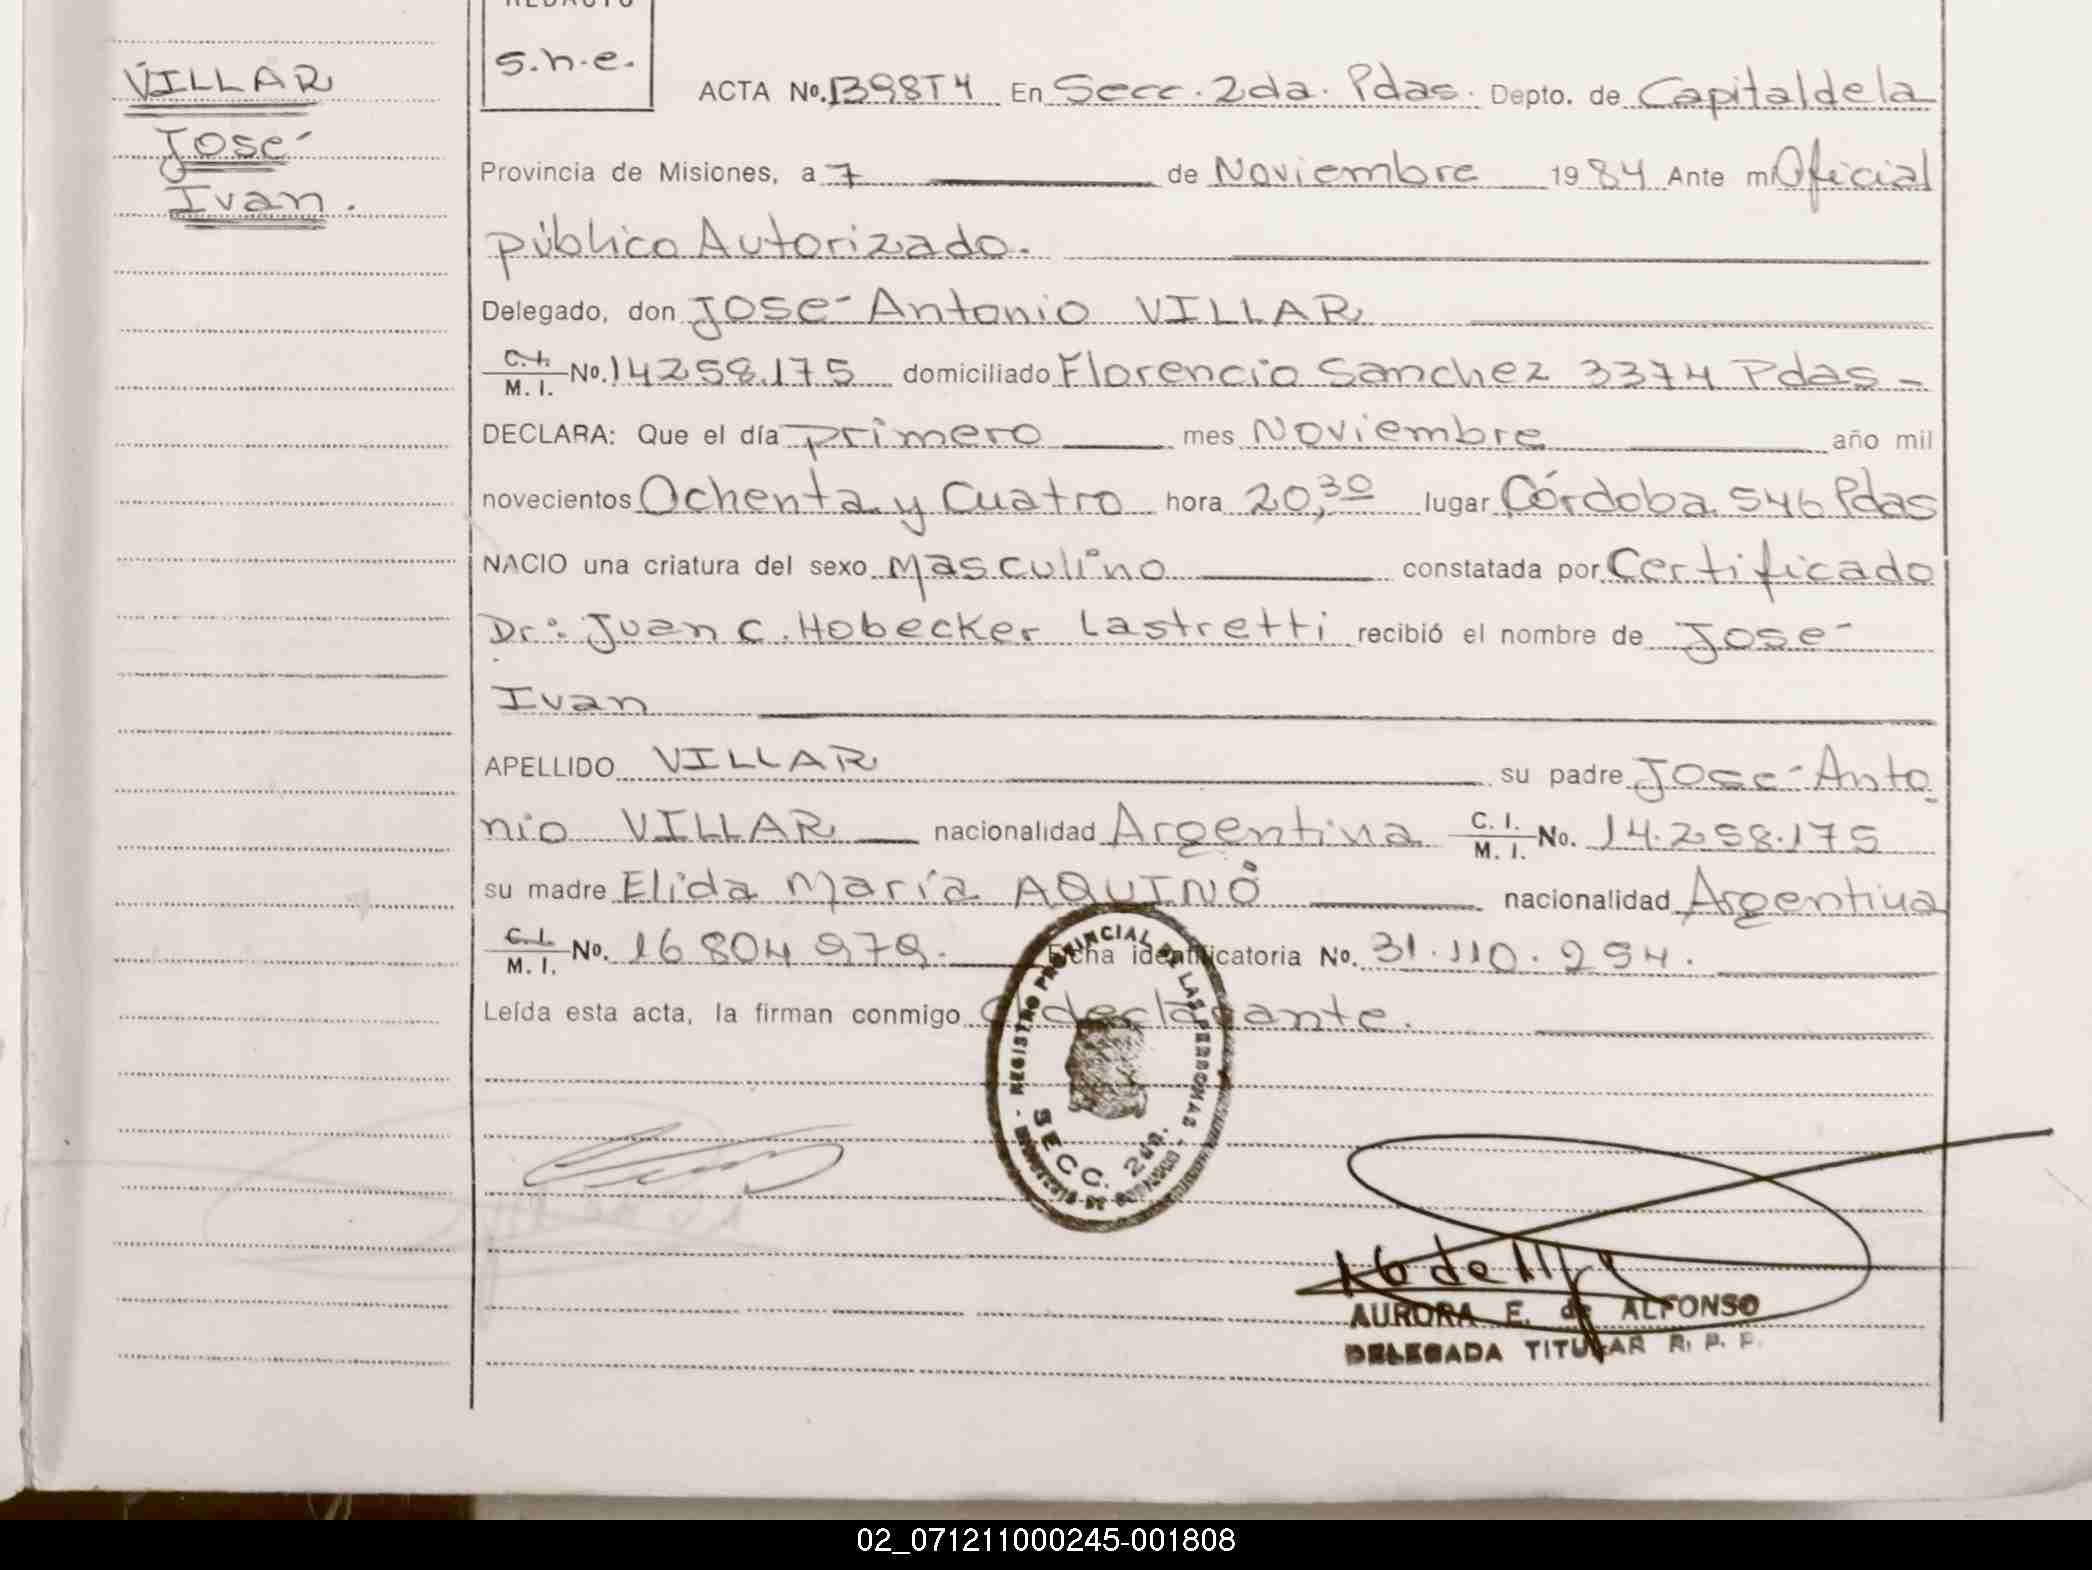 VILLAR
José
Ivan.
REDACTO
s.h.e.
ACTA No. 1398T4 En Secc. 2da. Pdas. Depto. de Capital de la
Provincia de Misiones, a 7 de Noviembre 1984 Ante mi Oficial
público Autorizado.
Delegado, don José Antonio VILLAR
C.I. M.I. No. 14.258.175 domiciliado Florencio Sanchez 3374 Pdas -
DECLARA: Que el día primero mes Noviembre año mil
novecientos Ochenta y Cuatro hora 20,30 lugar Córdoba 546 Pdas
NACIO una criatura del sexo Masculino constatada por Certificado
Dr: Juan C. Hobecker Lastretti recibió el nombre de José
Ivan
APELLIDO VILLAR su padre José Anto
nio VILLAR nacionalidad Argentina C.I. M.I. No. 14.258.175
su madre Elida María AQUINO nacionalidad Argentina
C.I. M.I. No. 16804979. Ficha identificatoria No. 31.110.294.
Leída esta acta, la firman conmigo el declarante.
REGISTRO PROVINCIAL DE LAS PERSONAS
SECC. 2da.
AURORA E. de ALFONSO
DELEGADA TITULAR R. P. P.
02_071211000245-001808